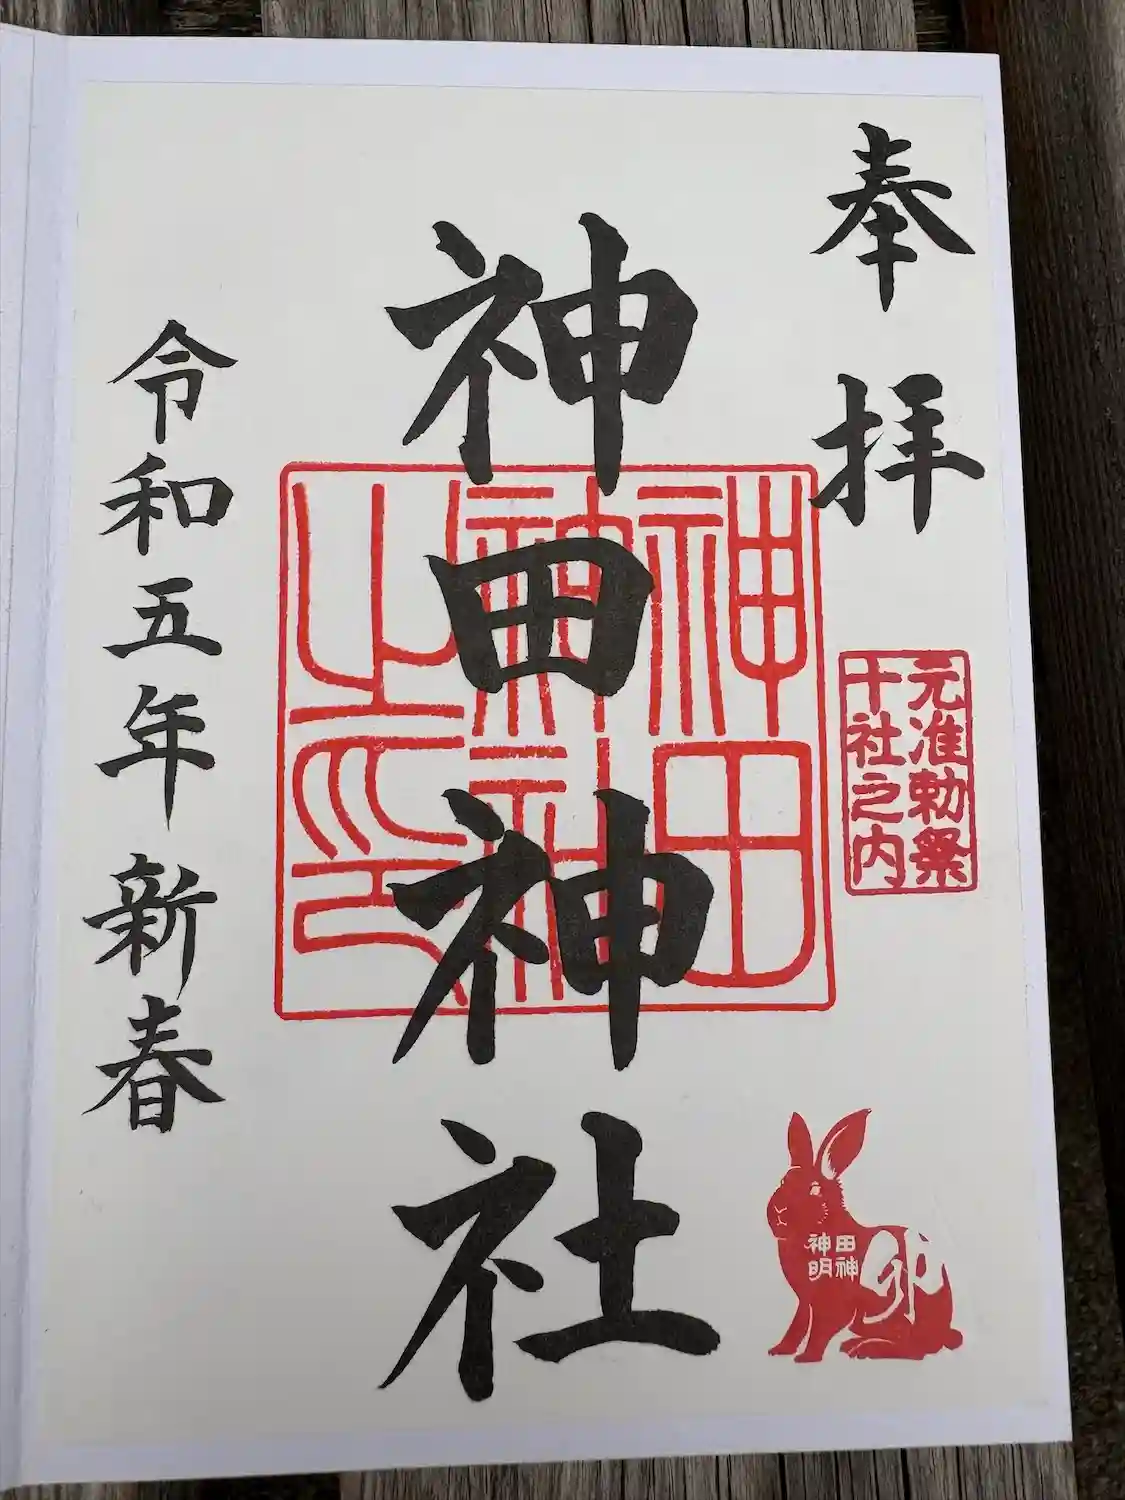 奉拝
元准勅祭
十社之内
神田神社
神田
神社
之印
令和五年 新春
田神
神明
卯